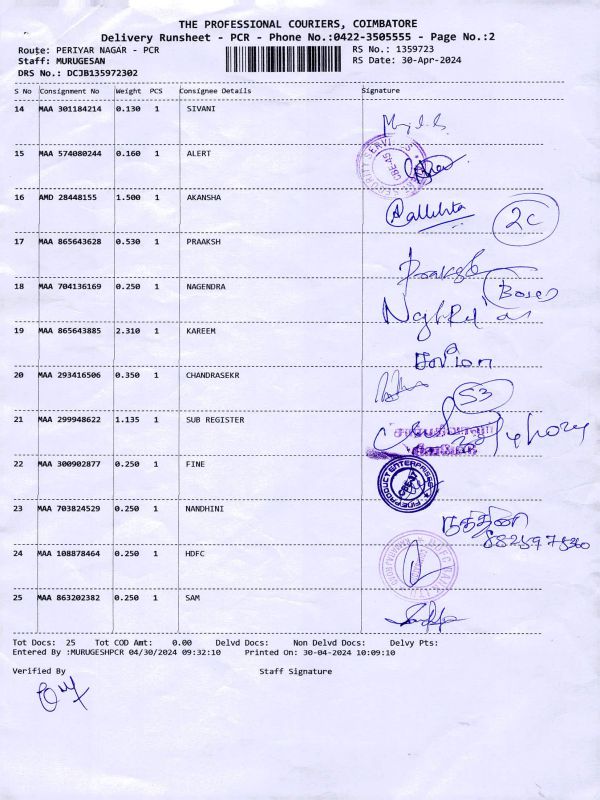 THE PROFESSIONAL COURIERS, COIMBATORE
Delivery Runsheet - PCR - Phone No.:0422-3505555 - Page No.:2
Route: PERIYAR NAGAR - PCR RS No.: 1359723
Staff: MURUGESAN RS Date: 30-Apr-2024
DRS No.: DCJB135972302
S No Consignment No Weight PCS Consignee Details Signature
14 MAA 301184214 0.130 1 SIVANI
15 MAA 574080244 0.160 1 ALERT
SECURITY SERVI
CBE-45
16 AMD 28448155 1.500 1 AKANSHA
2C
17 MAA 865643628 0.530 1 PRAAKSH
18 MAA 704136169 0.250 1 NAGENDRA
19 MAA 865643885 2.310 1 KAREEM
20 MAA 293416506 0.350 1 CHANDRASEKR
53
21 MAA 299948622 1.135 1 SUB REGISTER
22 MAA 300902877 0.250 1 FINE
FINE PRODUCT ENTERPRISES
CBE-37
23 MAA 703824529 0.250 1 NANDHINI
நந்தினி
24 MAA 108878464 0.250 1 HDFC
25 MAA 863202382 0.250 1 SAM
Tot Docs: 25 Tot COD Amt: 0.00 Delvd Docs: Non Delvd Docs: Delvy Pts:
Entered By :MURUGESHPCR 04/30/2024 09:32:10 Printed On: 30-04-2024 10:09:10
Verified By Staff Signature